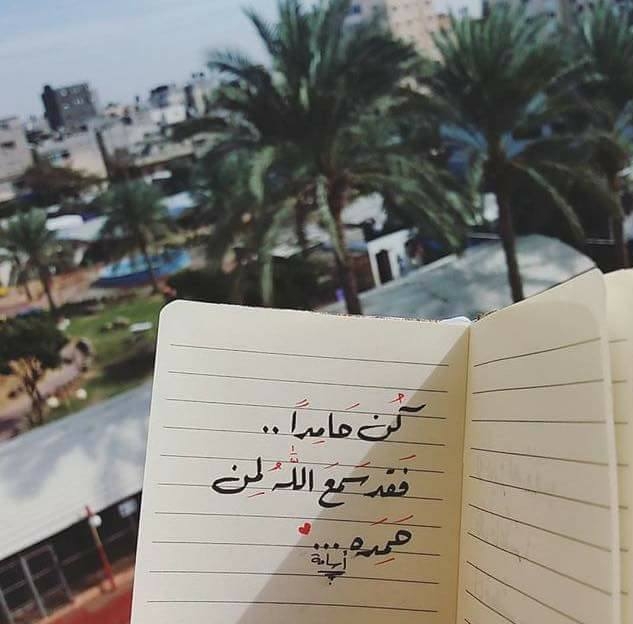 كُن حَامِداً ..
فَقَد سَمَعَ اللَّهُ لِمن
حَمِدَه ...
أسامة